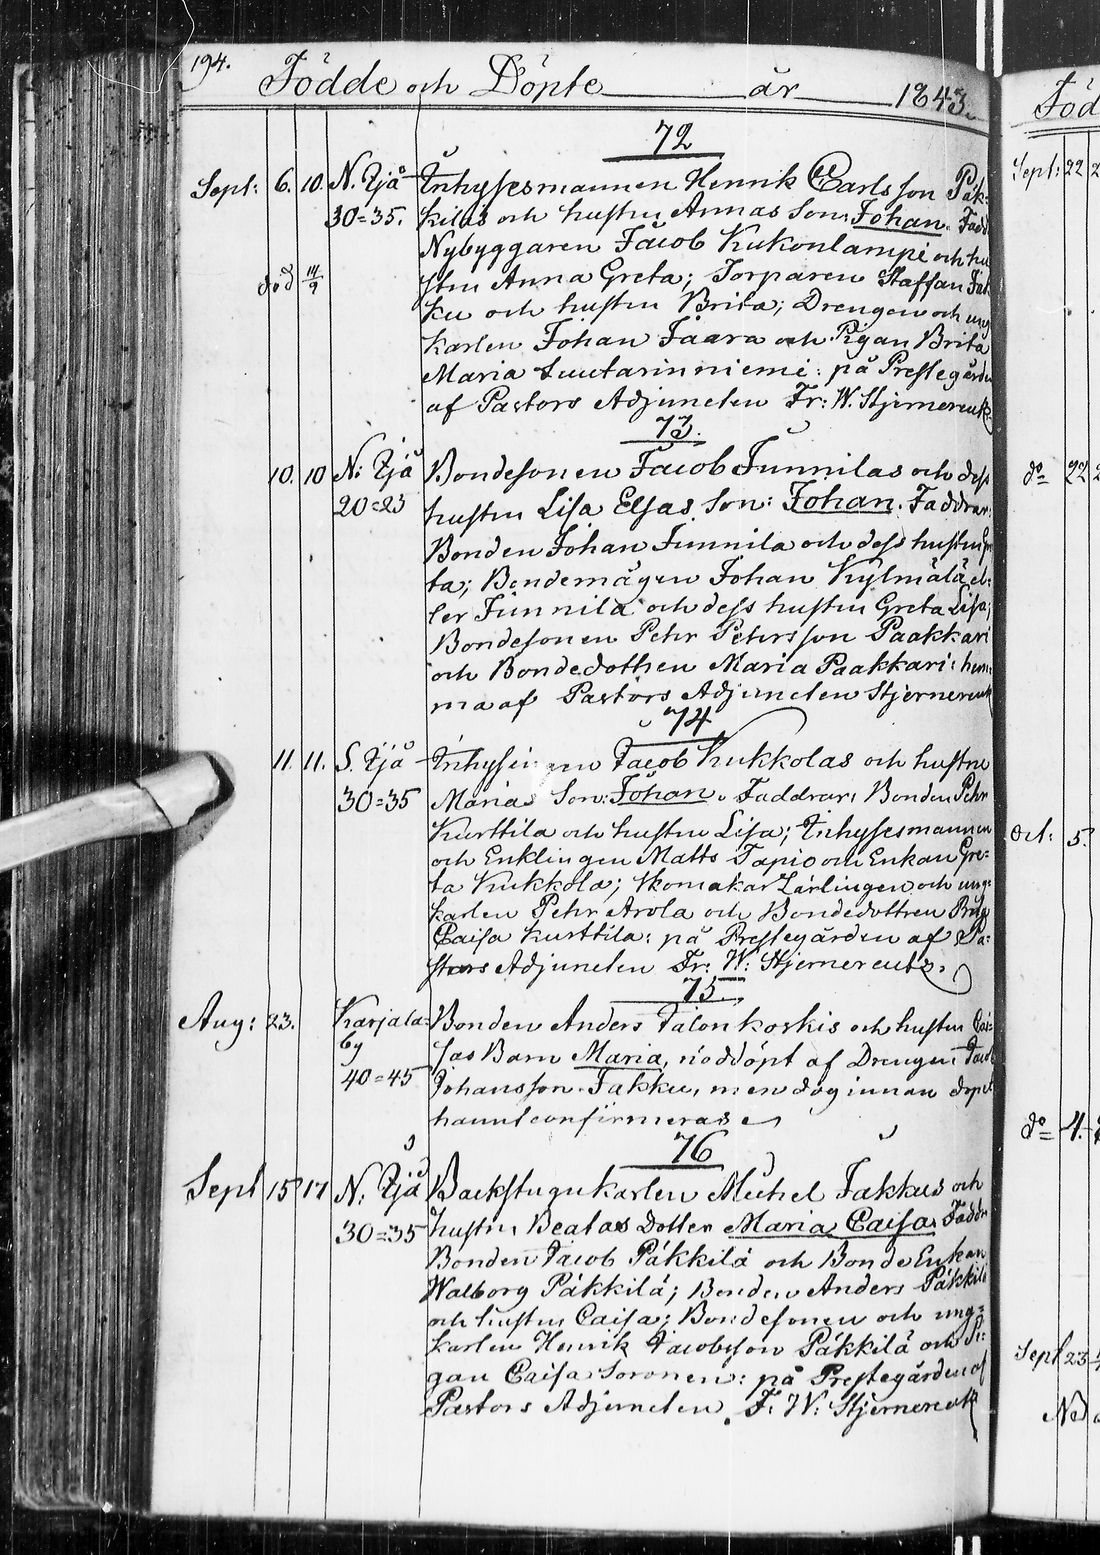 194.
Födde och Döpte år 1843.
72
Sept: 6. 10. N. Ijå Inhysesmannen Henrik Carlsson Päk-
30=35. kiläs och hustru Annas Son: Johan. Fadd
Nybyggaren Jacob Kukonlampi och hu
död 14/9 stru Anna Greta; Torparen Staffan
ku och hustru Brita; Drengen och ung
karlen Johan Jaara och Pigan Brita
Maria Luutarinniemi: på Prestegården
af Pastors Adjuncten Fr: W. Stjernereutz
73.
10. 10 N: Ijå Bondesonen Jacob Junnilas och dess
20=23 hustru Lisa Elsas Son: Johan. Faddrar:
Bonden Johan Junnila och dess hustru
ta; Bondemågen Johan Kylmälä el-
ler Junnila och dess hustru Greta Lisa;
Bondesonen Pehr Petersson Paakkari
och Bondedottren Maria Paakkari: hem-
ma af Pastors Adjuncten Stjernereutz
74
11. 11. S. Ijå Jacob Kukkolas och hustru
30=35 Marias Son: Johan. Faddrar: Bonden Pehr
Kurttila och hustru Lisa; Inhysesmannen
och Enklingen Matts Tapio och Enkan Gre-
ta Kukkola; Skomakar Lärlingen och ung-
karlen Pehr Arola och Bondedottren Brita
Caisa Kurttila: på Prestegården af Pa-
stors Adjuncten Fr: W: Stjernereutz.
75.
Aug: 23. Karjala- Bonden Anders Talonkoskis och hustru Cai-
by sas Barn Maria, nöddöpt af Drengen Jacob
40=45 Johansson Jakku, men dog innan dopet
hannt confirmeras
76
Sept 15 17 N: Ijå Backstugukarlen Michel Jakkus och
30=35 hustru Beatas Dotter Maria Caisa. Faddr
Bonden Jacob Päkkilä och Bonde Enkan
Walborg Päkkilä; Bonden Anders Päkkilä
och hustru Caisa; Bondesonen och ung-
karlen Henrik Jacobsson Päkkilä och Pi-
gan Caisa Soronen: på Prestegården af
Pastors Adjuncten F: W: Stjernereutz
Föd
Sept: 22 2
do 22 2
Oct: 5.
do 4.
Sept 23